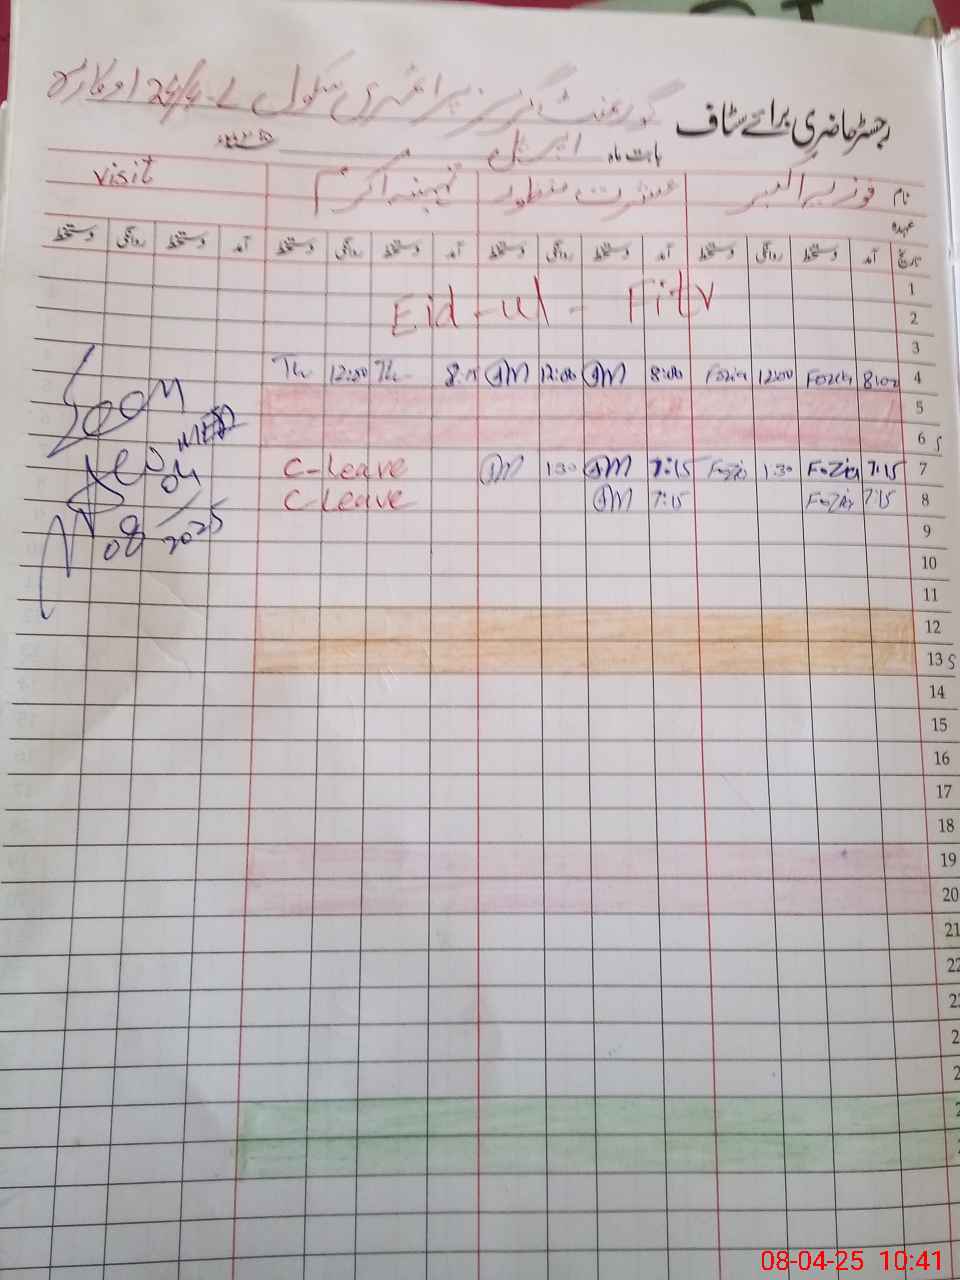 رجسٹر حاضری برائے سٹاف
گورنمنٹ گرلز پرائمری سکول 24/4-L اوکاڑہ
بابت ماہ اپریل
نام فوزیہ اکبر عشرت منظور تہمینہ اکرم visit
عہدہ
تاریخ آمد دستخط روانگی دستخط آمد دستخط روانگی دستخط آمد دستخط روانگی دستخط آمد دستخط روانگی دستخط
1
Eid-ul-Fitr
2
3
Th 12:00 Th 8:15 AM 12:00 AM 8:00 Fozia 12:00 Fozia 8:00 4
5
6
C-Leave AM 1:30 AM 7:15 Fozia 1:30 Fozia 7:15 7
C-Leave AM 7:15 Fozia 7:15 8
Seen
04
08 2025
9
10
11
12
13
14
15
16
17
18
19
20
21
22
08-04-25 10:41